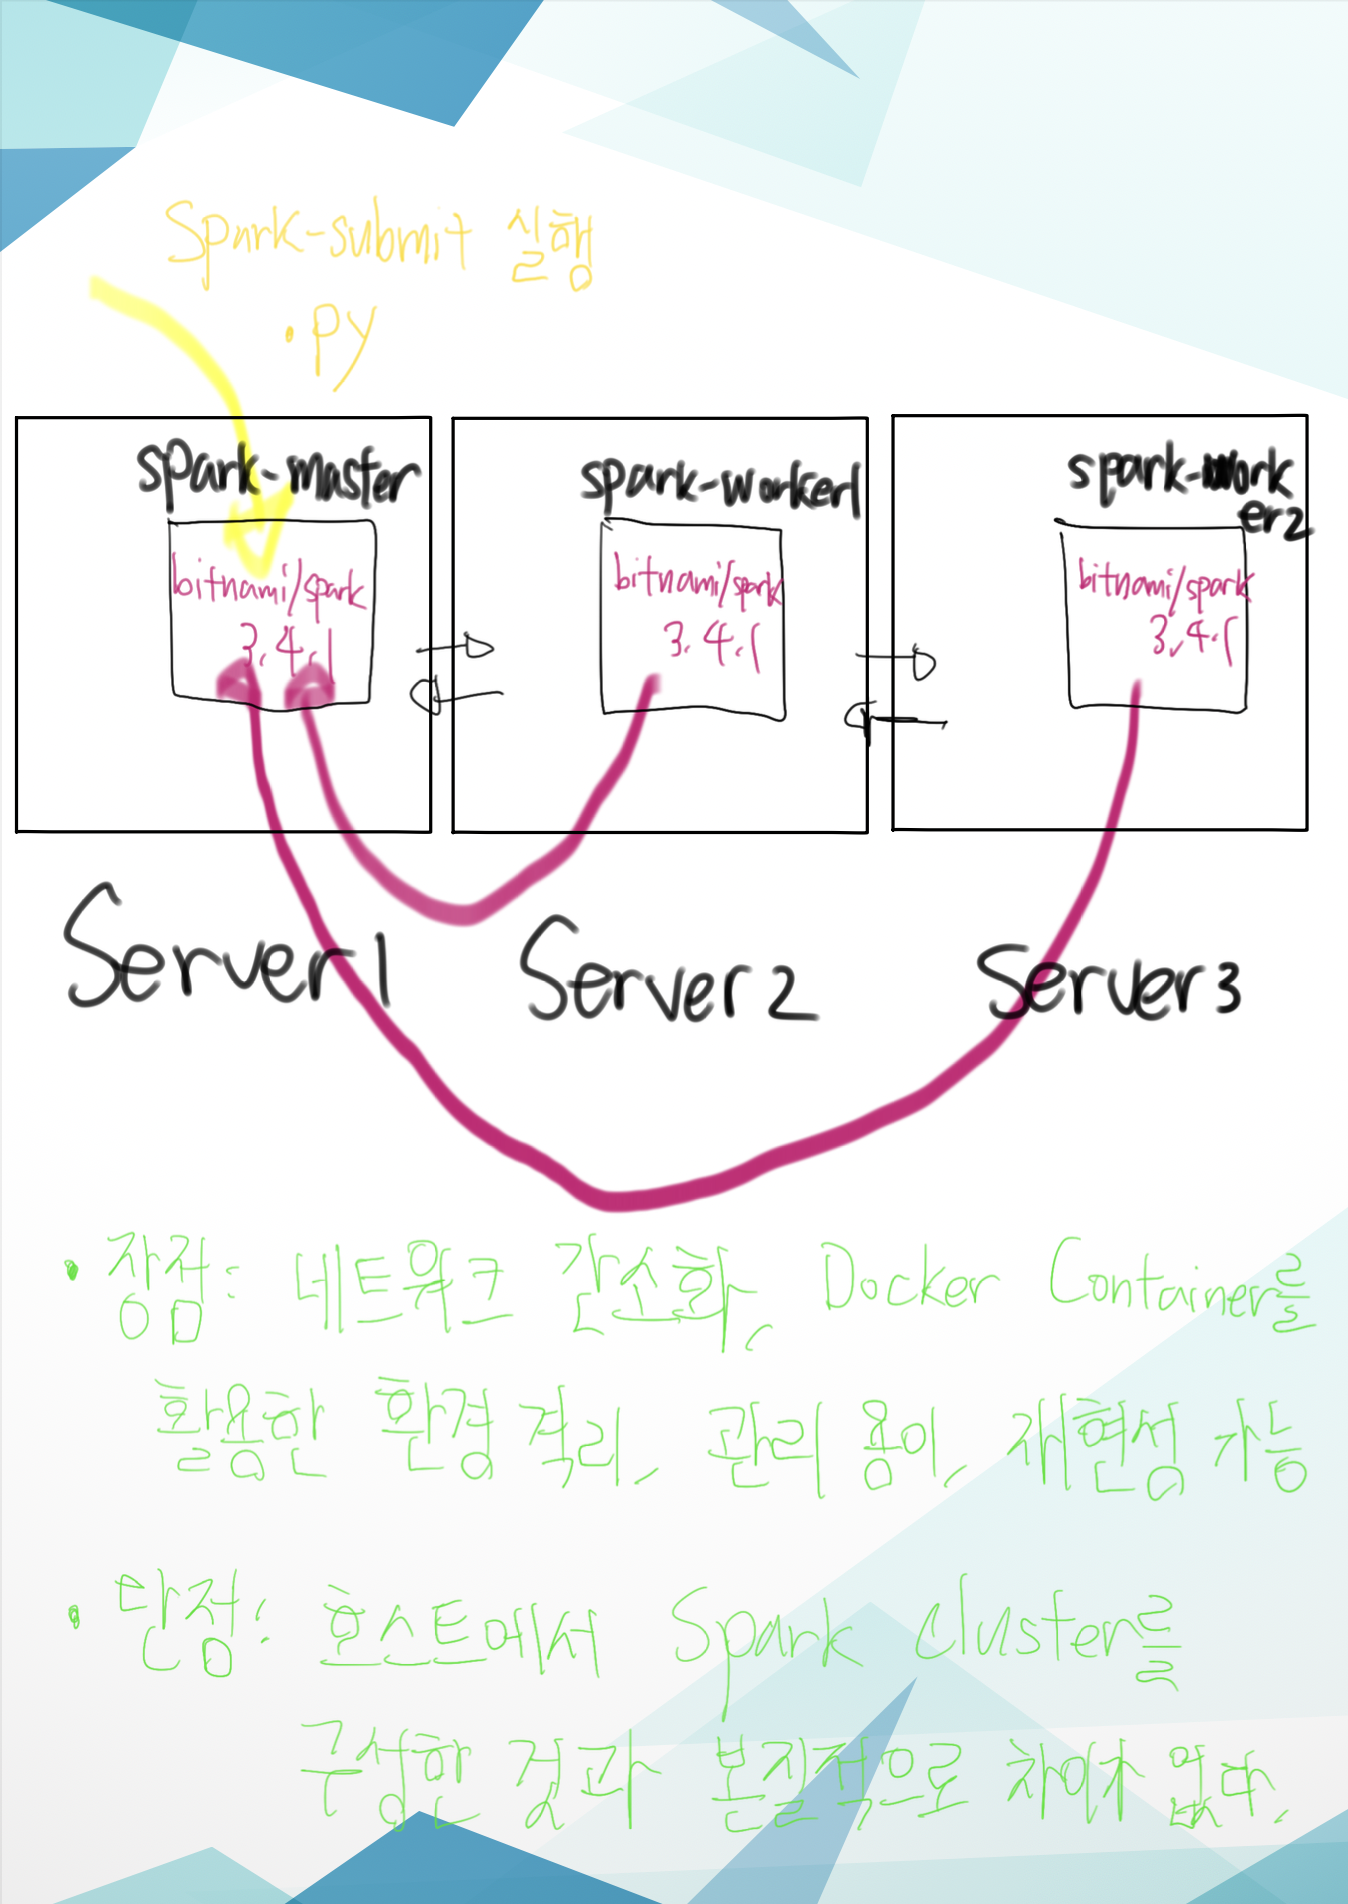 Spark-submit 실행
.py
spark-master
spark-worker1
spark-work
er2
bitnami/spark
3.4.1
bitnami/spark
3.4.1
bitnami/spark
3.4.1
Server1
Server2
Server3
• 장점: 네트워크 간소화, Docker Container를
활용한 환경 격리, 관리 용이, 재현성 가능
• 단점: 호스트에서 Spark Cluster를
구성한 것과 본질적으로 차이가 없다.